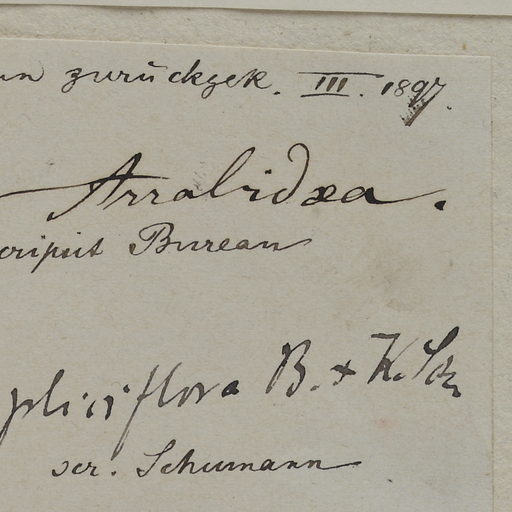 un zurückgek. III. 1897.
Arrabidæa.
cripsit Bureau
pliciflora B. & K. Sch
scr. Schumann